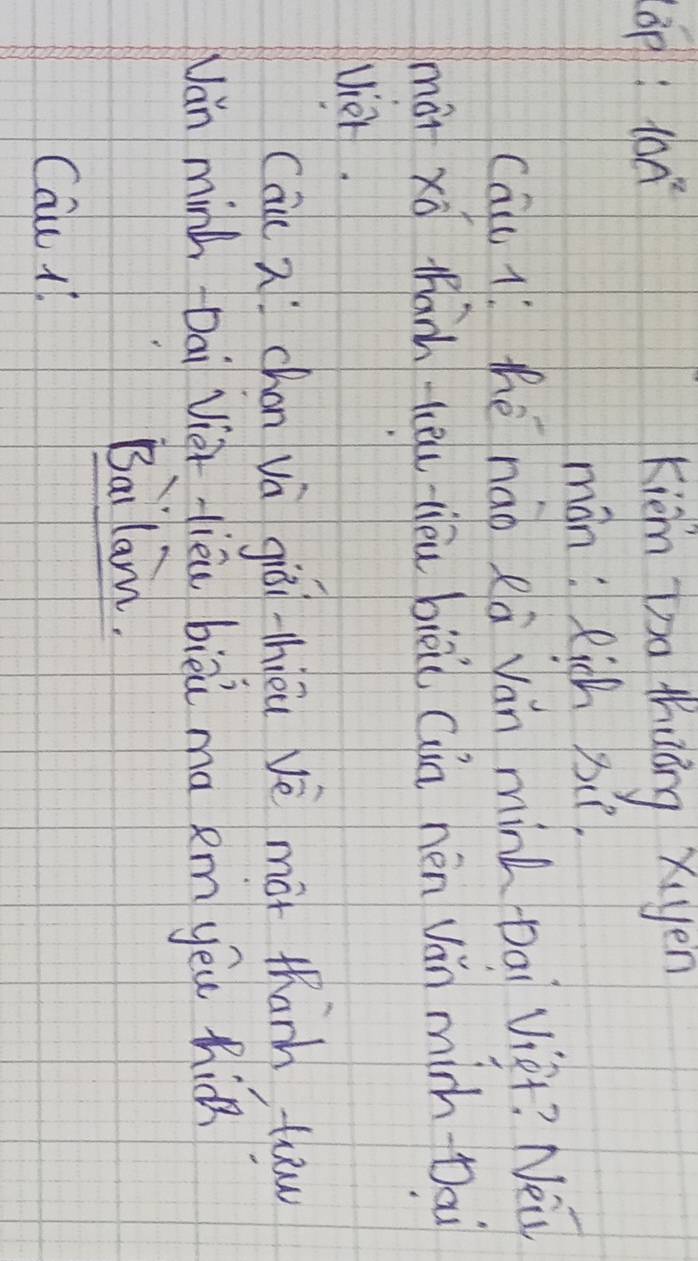 Lớp : 10A²
Kiểm tra thường xuyên
môn : lịch sử.
Câu 1: thế nào là văn minh Đại Việt? Nêu
một xố thành tựu tiêu biểu của nền văn minh Đại
Việt.
Câu 2: chọn và giới thiệu về một thành tựu
văn minh Đại Việt tiêu biểu mà em yêu thích
Bài làm.
Câu 1: